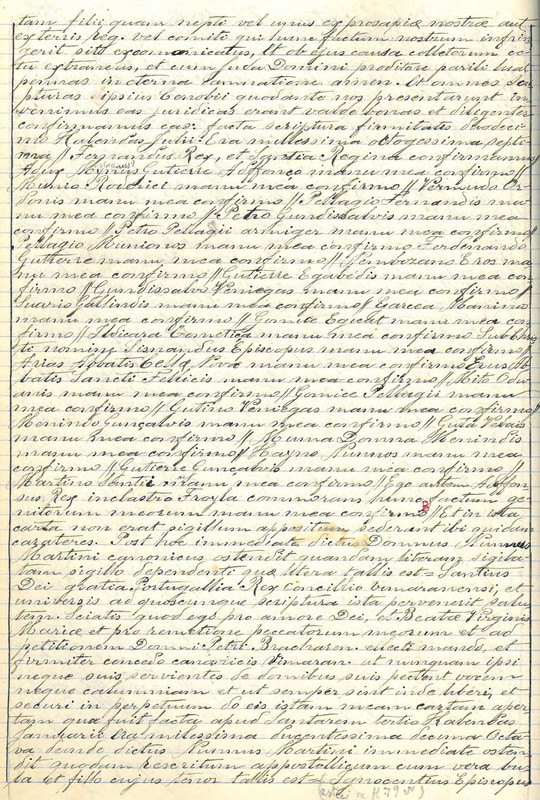 tam filii, quam nepti vel unus ex prosapiæ nostræ aut
externis reg. vel comite qui hunc factum nostrum infrin
gerit sitt excomonicatus, Et ob ejus causa
extraneus, et cum Juda Domini proditore parili luat
pennas in eterna damnatione amen. Et omnes Scri
pturas ipsius Cenobii quodante nos presentarunt in
venimus eas juridicas erant valde bonas et diligenter
confirmamus eas. facta scriptura firmitatis
Kalendas Julii. Era millessima octogessima septi
ma // Fernandus Rex, et Regina confirmamus
Gutierre Affonço manu mea confirmo //
Munio Roderici manu mea confirmo // Vermudo Or
donis manu mea confirmo // Pellagio Fernandis ma
nu mea confirmo // Petro Gundissalvis manu mea
confirmo // Petro Pellagii armiger manu mea confirmo //
Pellagio Munionis manu mea confirmo Ferdenando
Gutierre manu mea confirmo // Eros ma
nu mea confirmo // Gutierre manu mea con
firmo // Gundissalvo Veniegas manu mea confirmo //
manu mea confirmo // Garcea
manu mea confirmo // Gomice manu mea con
firmo // manu mea confirmo Sub Chris
te nomine Sisnandus Episcopus manu mea confirmo //
Arias Abbatis manu mea confirmo A
batis Sancti Felicis manu mea confirmo // Mito
manu mea confirmo // Gomice Pellagii manu
mea confirmo // Gutinu Veniegas manu mea confirmo //
Menindo Gunçalvis manu mea confirmo //
manu mea confirmo // Muma Donna Menindis
manu mea confirmo // Nunnos manu mea
confirmo // Gutierre Gunçalvis manu mea confirmo //
Martino manu mea confirmo // Ego autem Affon
sus Rex inclastro Froyla commorans hunc factum ge
nitorum meorum manu mea confirmo // Et in ista
carta non erat sigillum appositum sederant ibi quidam
carateres. Post hoc immediate dictus Domnus Nunnus
Martini canonicus ostendit quandam literam sigila
tam sigillo dependenti quæ litera tallis est = Santius
Dei gratia Portugallia Rex Concillio Vimaranensi, et
universis ad quoscunque scriptura ista pervenerit salu
tem. Sciatis quod ego pro amore Dei, et Beatæ Virginis
Mariæ et pro remetione peccatorum meorum et ad
petitionem Domni Petri Bracharen. electi mando, et
firmiter concedo canonicis Vimaran. ut nunquam ipsi
neque suis servientes de domibus suis pectent vocem
neque calumniam et ut semper sint inde liberi, et
securi in perpetuum do eis istam meam cartam aper
tam qua fuit facta apud Santarem tertio Kalendas
Januarii Era milessima ducentissima decima Octa
va deinde dictus Nunnus Martini immediate osten
dit quodam rescritum appostollicum cum vera bu
la et fillo cujus tenor tallis est = Ignocenthus Episcopus